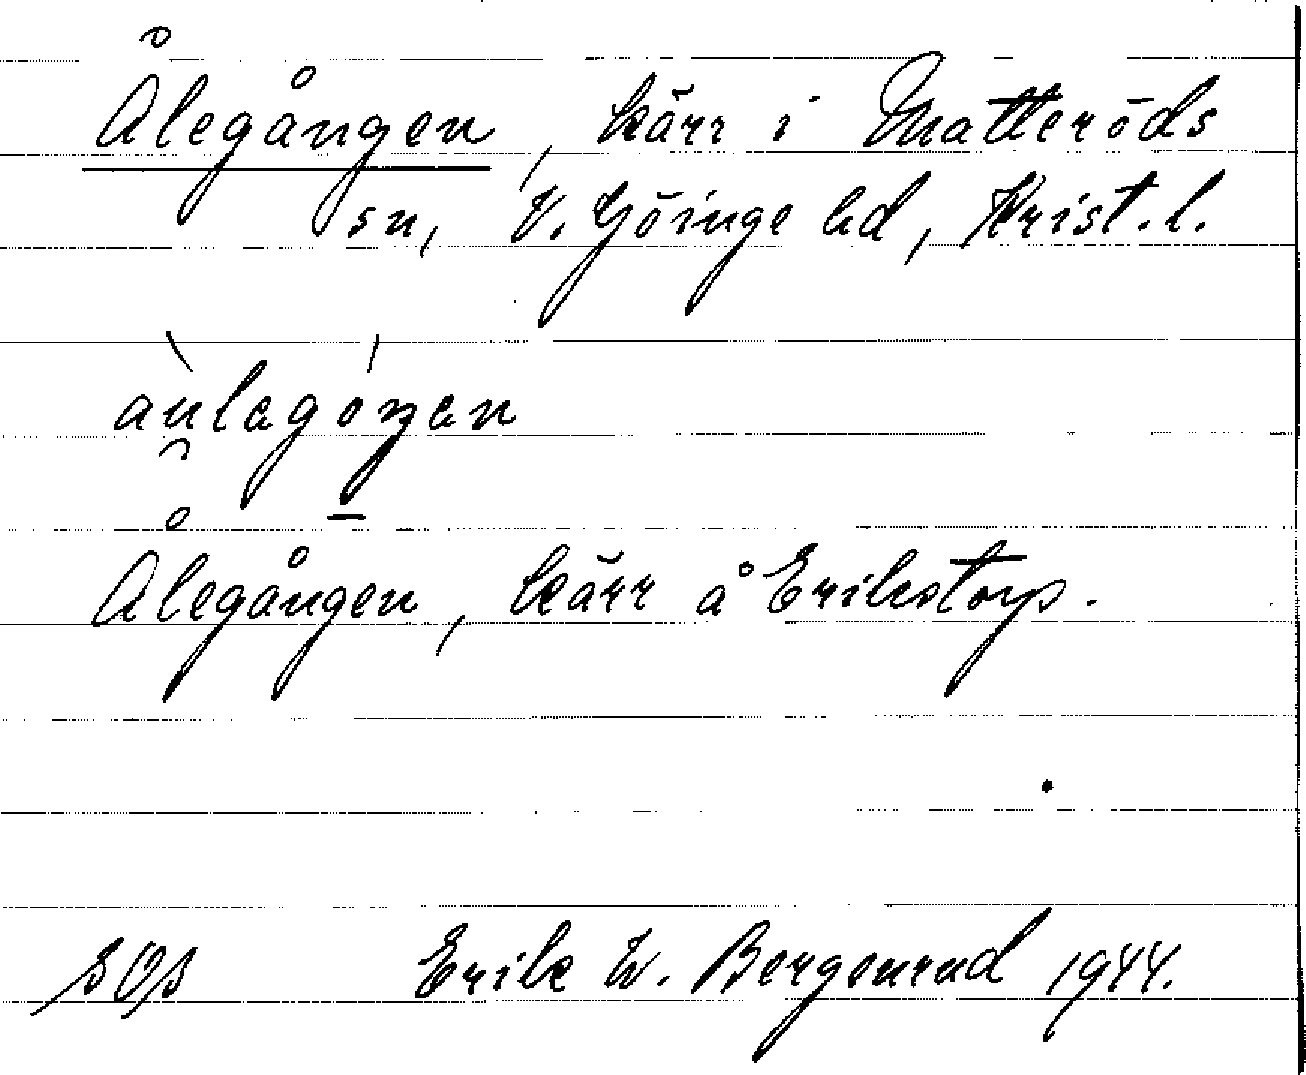 Ålegången, kärr i Matteröds
sn, V. Göinge hd, Krist. l.
àu̯lagóŋan
Ålegången, kärr å Erikstorp.
Erik W. Bergenrud 1944.